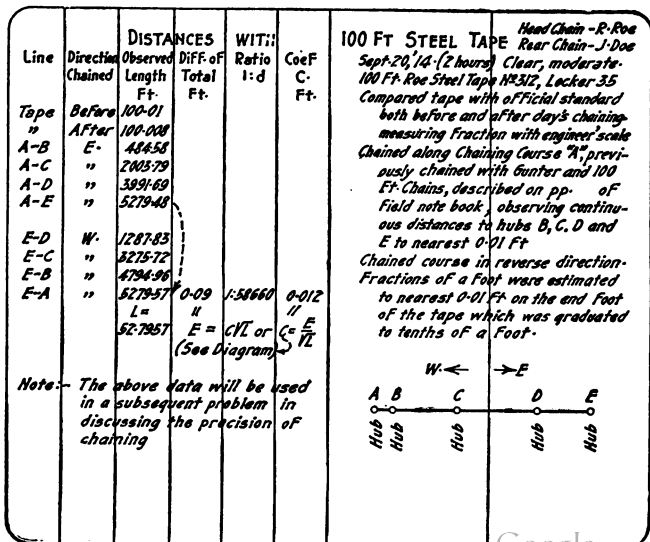 DISTANCES WITH
Line Direction Chained Observed Length Ft. Diff. of Total Ft. Ratio 1:d Coef C. Ft.
Tape Before 100.01
" After 100.008
A-B E. 484.58
A-C " 2003.79
A-D " 3991.69
A-E " 5279.48
E-D W. 1287.83
E-C " 3275.72
E-B " 4794.96
E-A " 5279.57 0.09 1:58660 0.012
L= " "
52.7957 E = C√L or C = E/√L
(See Diagram)
Note:- The above data will be used
in a subsequent problem in
discussing the precision of
chaining
100 FT STEEL TAPE Head Chain - R. Roe
Rear Chain - J. Doe
Sept. 20, '14. (2 hours) Clear, moderate.
100 Ft. Roe Steel Tape Nº 312, Locker 35
Compared tape with official standard
both before and after day's chaining
measuring fraction with engineer's scale
Chained along Chaining Course "A", previ-
ously chained with Gunter and 100
Ft. Chains, described on pp. of
Field note book, observing continu-
ous distances to hubs B, C, D and
E to nearest 0.01 Ft
Chained course in reverse direction.
Fractions of a foot were estimated
to nearest 0.01 Ft on the end foot
of the tape which was graduated
to tenths of a foot.
W. ← → E
A B C D E
Hub Hub Hub Hub Hub
Google